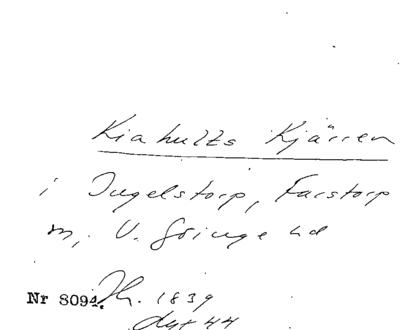 Kiahults Kjärren
i Ingelstorp, Farstorp
m, V. Göinge hd
Nr 8094. Th. 1839
dgt 44